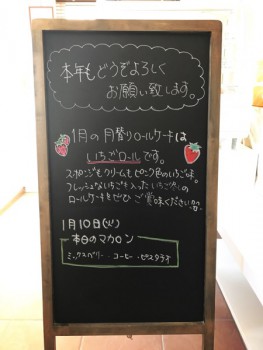 本年もどうぞよろしく
お願い致します。
1月の月替りロールケーキは
いちごロールです。
スポンジもクリームもピンク色のいちご味。
フレッシュないちごも入ったいちごづくしの
ロールケーキをぜひご賞味ください
1月10日(火)
本日のマカロン
ミックスベリー・コーヒー・ピスタチオ